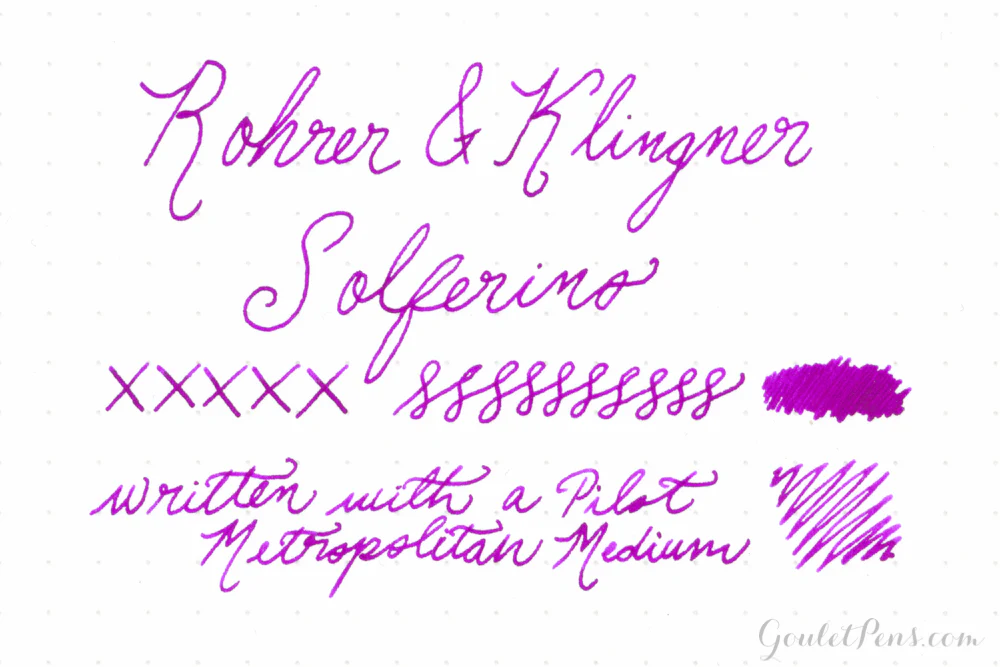 Rohrer & Klingner
Solferino
XXXXX ssssssssss
written with a Pilot
Metropolitan Medium
GouletPens.com